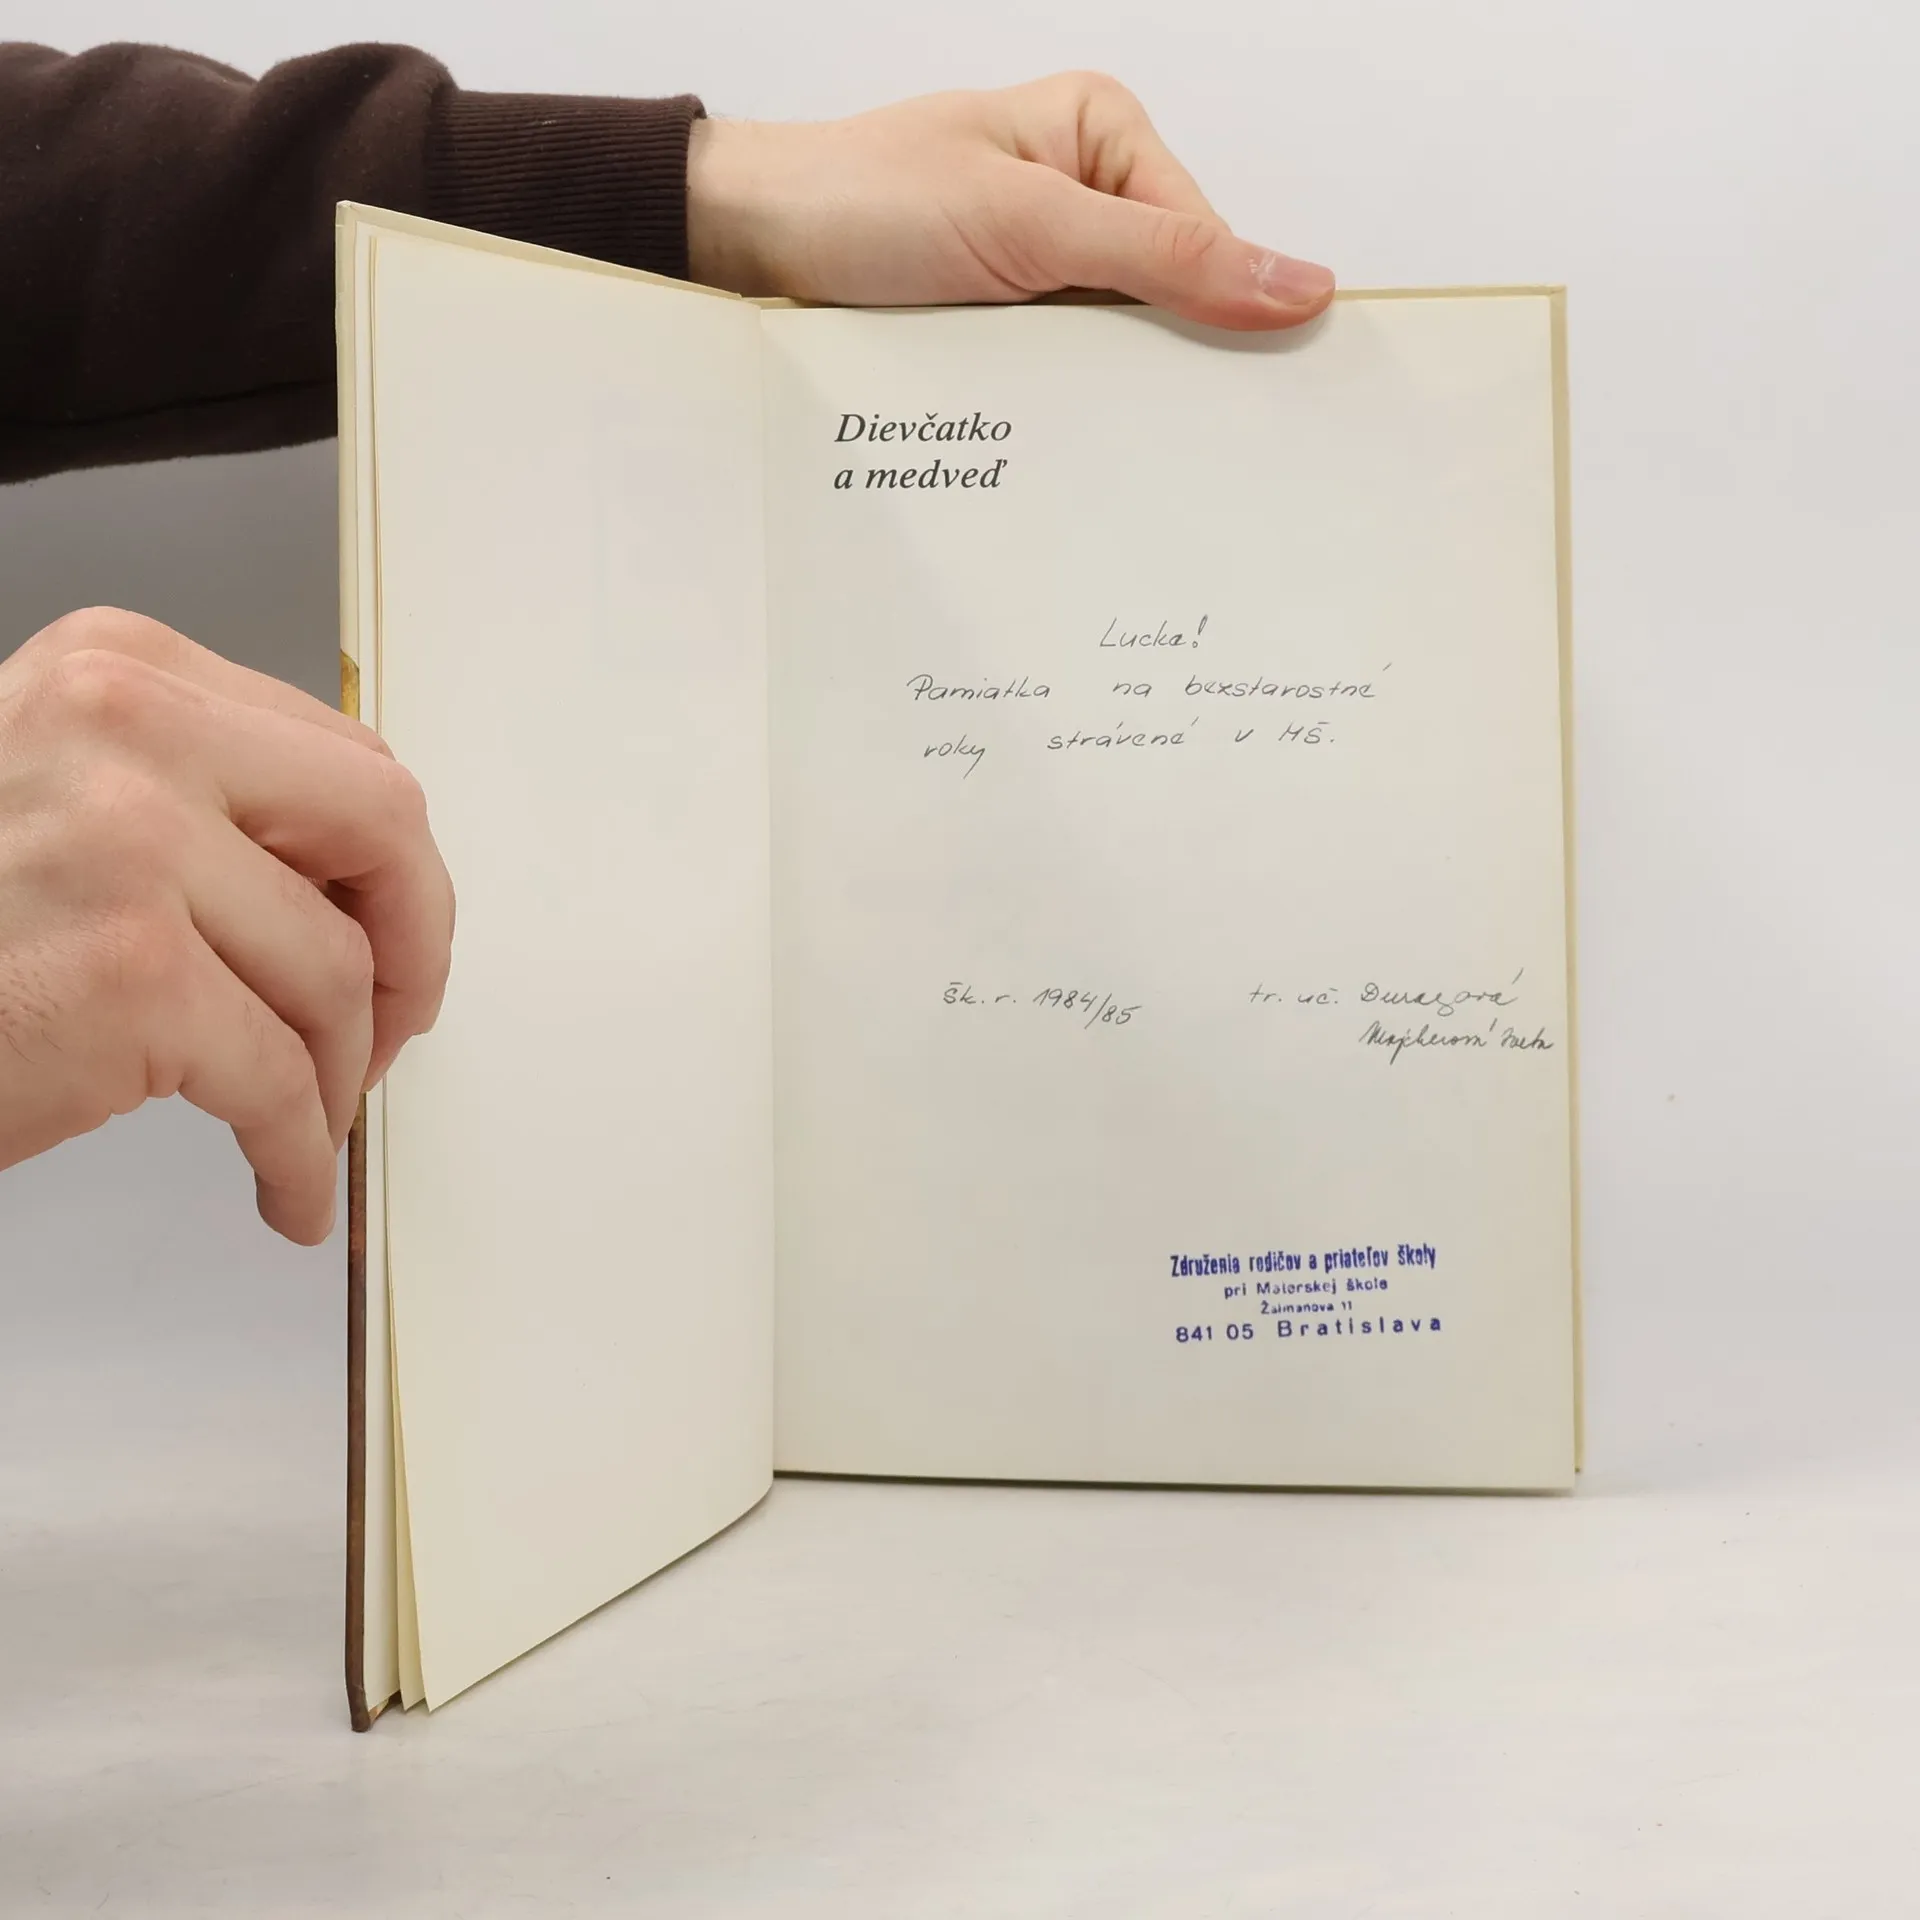 Dievčatko
a medveď
Lucka!
Pamiatka na bezstarostné
roky strávené v MŠ.
šk. r. 1984/85 tr. uč.
Združenia rodičov a priateľov školy
pri Materskej škole
Žalmanova 11
841 05 Bratislava